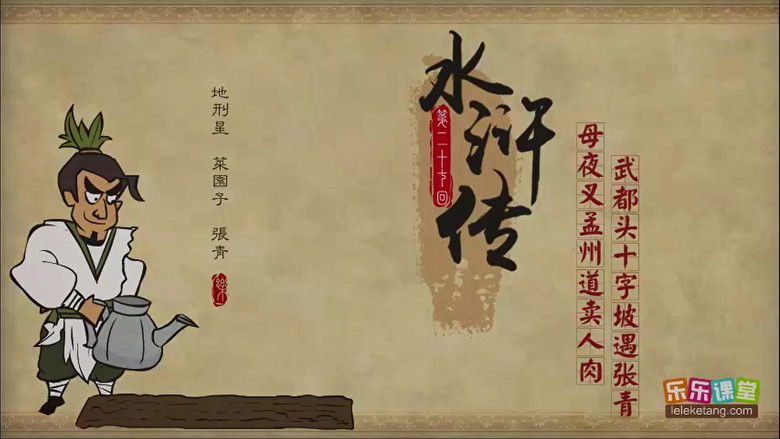 水浒传
第二十七回
母夜叉孟州道卖人肉
武都头十字坡遇张青
地刑星 菜園子 張青
乐乐课堂
leleketang.com